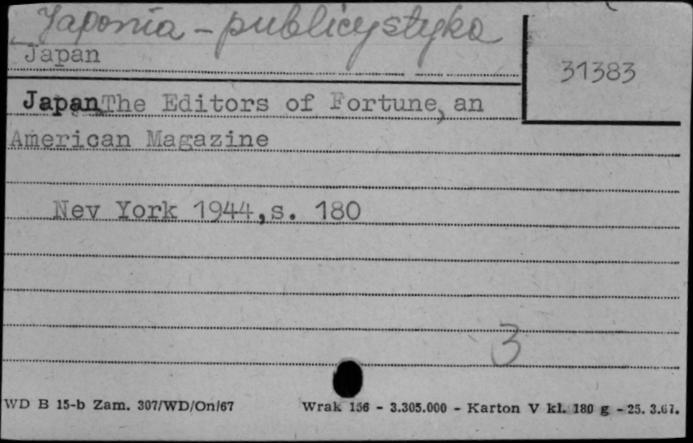 Japonia - publicystyka
Japan
31383
Japan The Editors of Fortune, an
American Magazine
Nev York 1944, s. 180
3
WD B 15-b Zam. 307/WD/On/67
Wrak 156 - 3.305.000 - Karton V kl. 180 g - 25. 3.67.